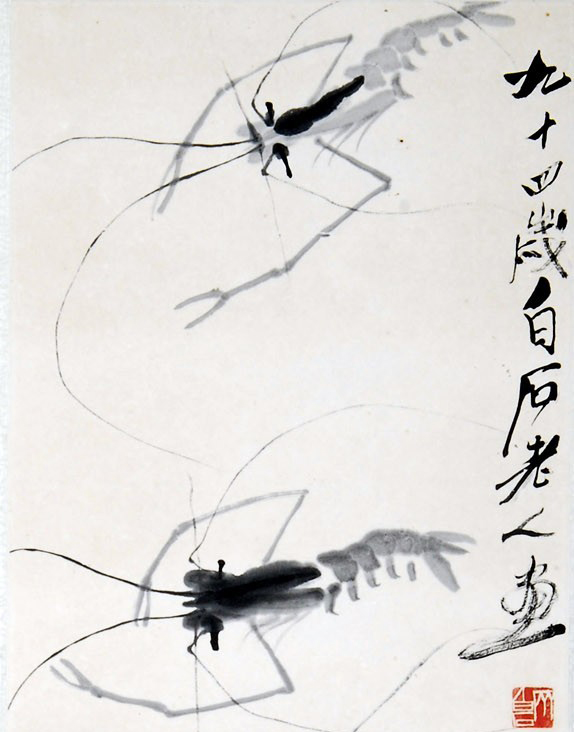 九十四歲白石老人畫